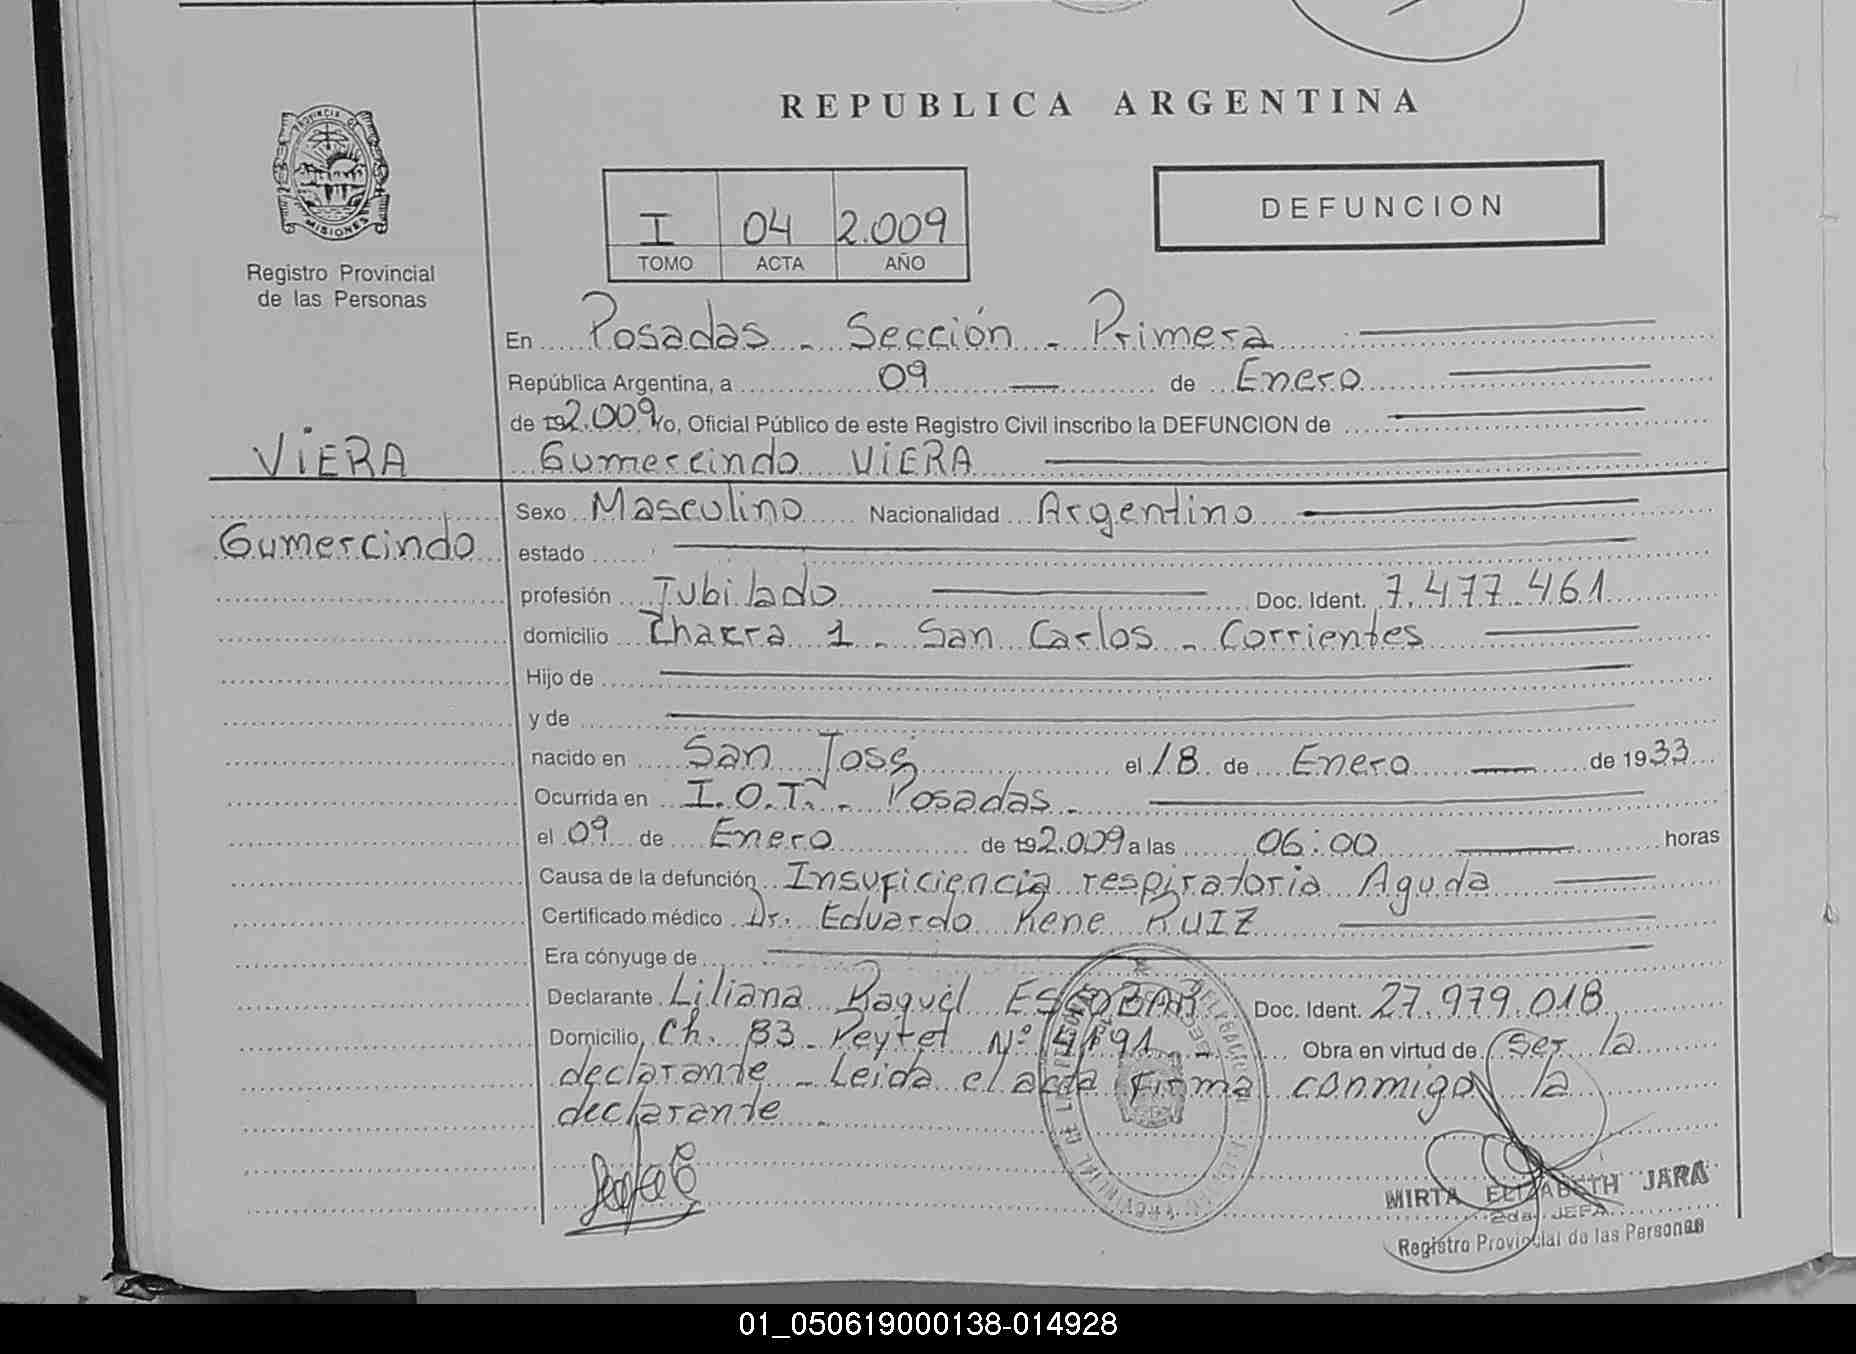 REPUBLICA ARGENTINA
PROVINCIA DE
MISIONES
Registro Provincial
de las Personas
I 04 2.009
TOMO ACTA AÑO
DEFUNCION
En Posadas - Sección - Primera
República Argentina, a 09 — de Enero
de 192.009 yo, Oficial Público de este Registro Civil inscribo la DEFUNCION de
VIERA
Gumercindo VIERA
Gumercindo
Sexo Masculino Nacionalidad Argentino
estado
profesión Jubilado Doc. Ident. 7.477.461
domicilio Chacra 1 - San Carlos - Corrientes
Hijo de
y de
nacido en San José el 18 de Enero — de 1933
Ocurrida en I.O.T. - Posadas -
el 09 de Enero de 192.009 a las 06:00 horas
Causa de la defunción Insuficiencia respiratoria Aguda
Certificado médico Dr. Eduardo Rene RUIZ
Era cónyuge de
Declarante Liliana Raquel ESCOBAR Doc. Ident. 27.979.018
Domicilio Ch. 83 - Peytet Nº 4191 - Obra en virtud de ser la
declarante - Leida el acta firma conmigo la
declarante
MIRTA ELIZABETH JARA
2da. JEFA
Registro Provincial de las Personas
01_050619000138-014928